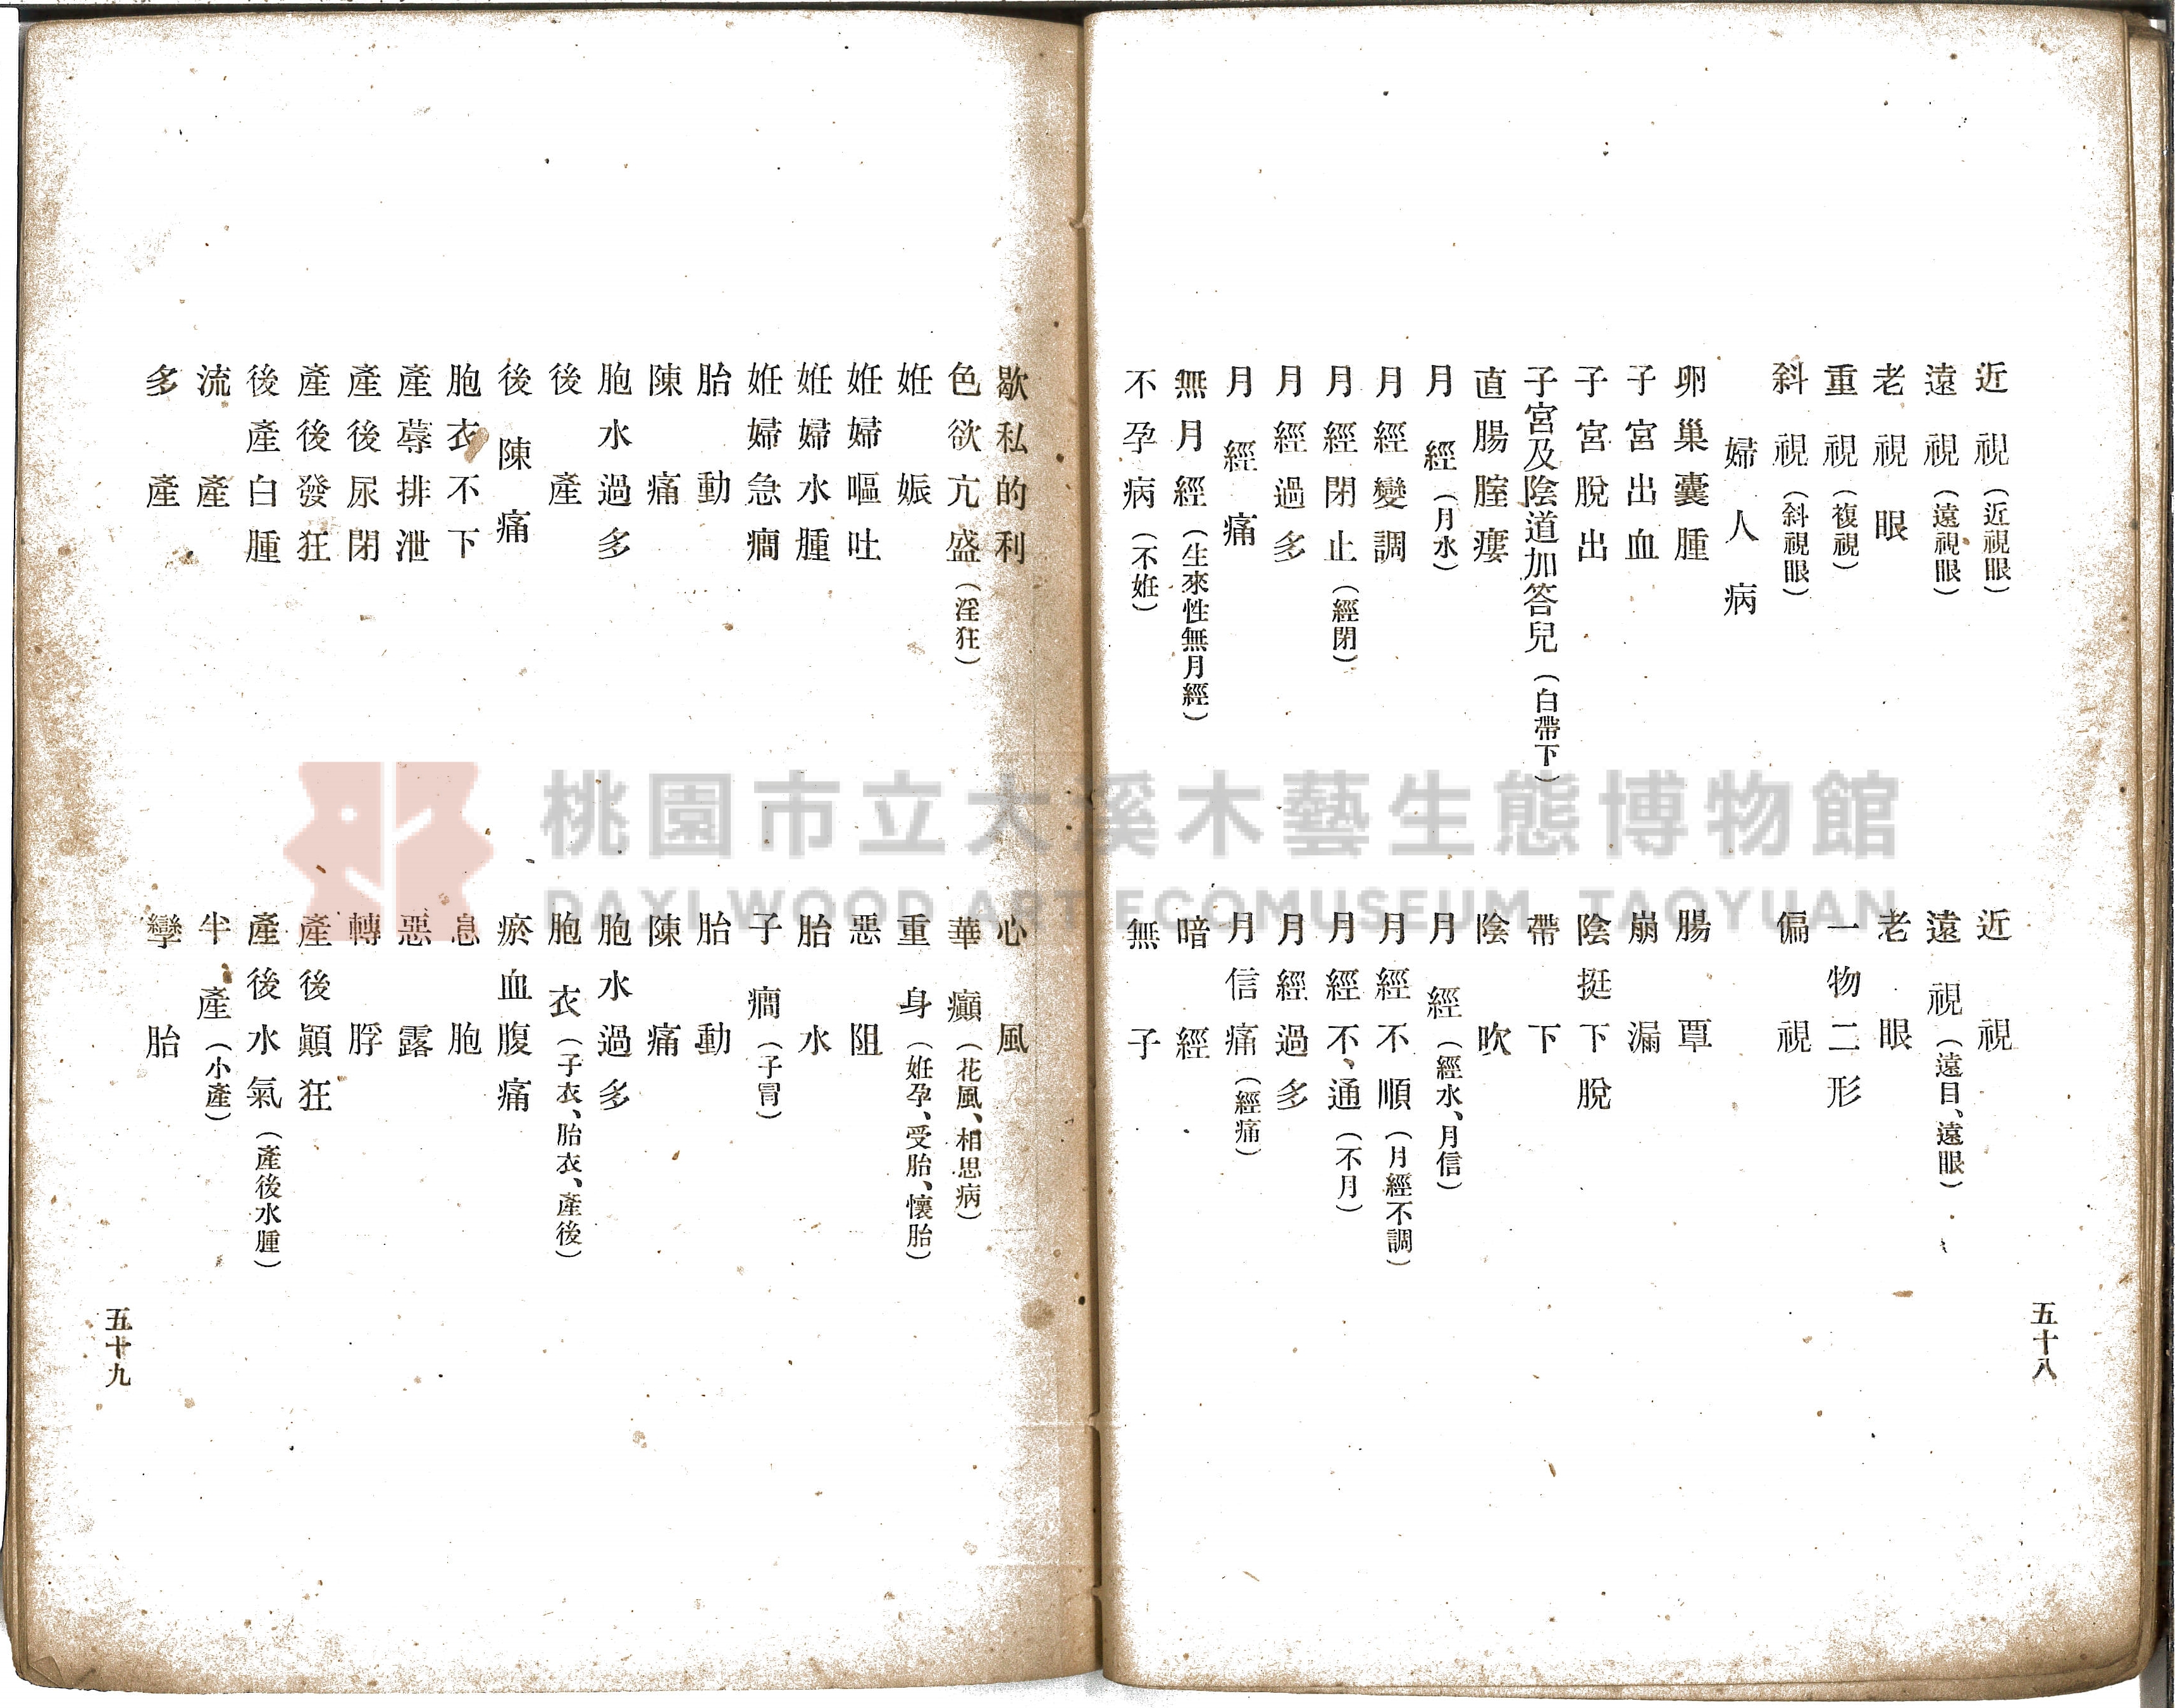 近視（近視眼）
近視
遠視（遠視眼）
遠視（遠目、遠眼）
老視眼
老眼
重視（複視）
一物二形
斜視（斜視眼）
偏視
婦人病
卵巢囊腫
腸覃
子宮出血
崩漏
子宮脫出
陰挺下脫
子宮及陰道加答兒（白帶下）
帶下
直腸腟瘻
陰吹
月經（月水）
月經（經水、月信）
月經變調
月經不順（月經不調）
月經閉止（經閉）
月經不通（不月）
月經過多
月經過多
月經痛
月信痛（經痛）
無月經（生來性無月經）
暗經
不孕病（不姙）
無子
五十八
歇私的利
心風
色欲亢盛（淫狂）
華癲（花風、相思病）
姙娠
重身（姙孕、受胎、懷胎）
姙婦嘔吐
惡阻
姙婦水腫
胎水
姙婦急癎
子癎（子冐）
胎動
胎動
陳痛
陳痛
胞水過多
胞水過多
後產
胞衣（子衣、胎衣、產後）
後陳痛
瘀血腹痛
胞衣不下
息胞
產蓐排泄
惡露
產後尿閉
轉脬
產後發狂
產後顚狂
後產白腫
產後水氣（產後水腫）
流產
半產（小產）
多產
孿胎
五十九
桃園市立大溪木藝生態博物館
DAXI WOOD ART ECOMUSEUM, TAOYUAN